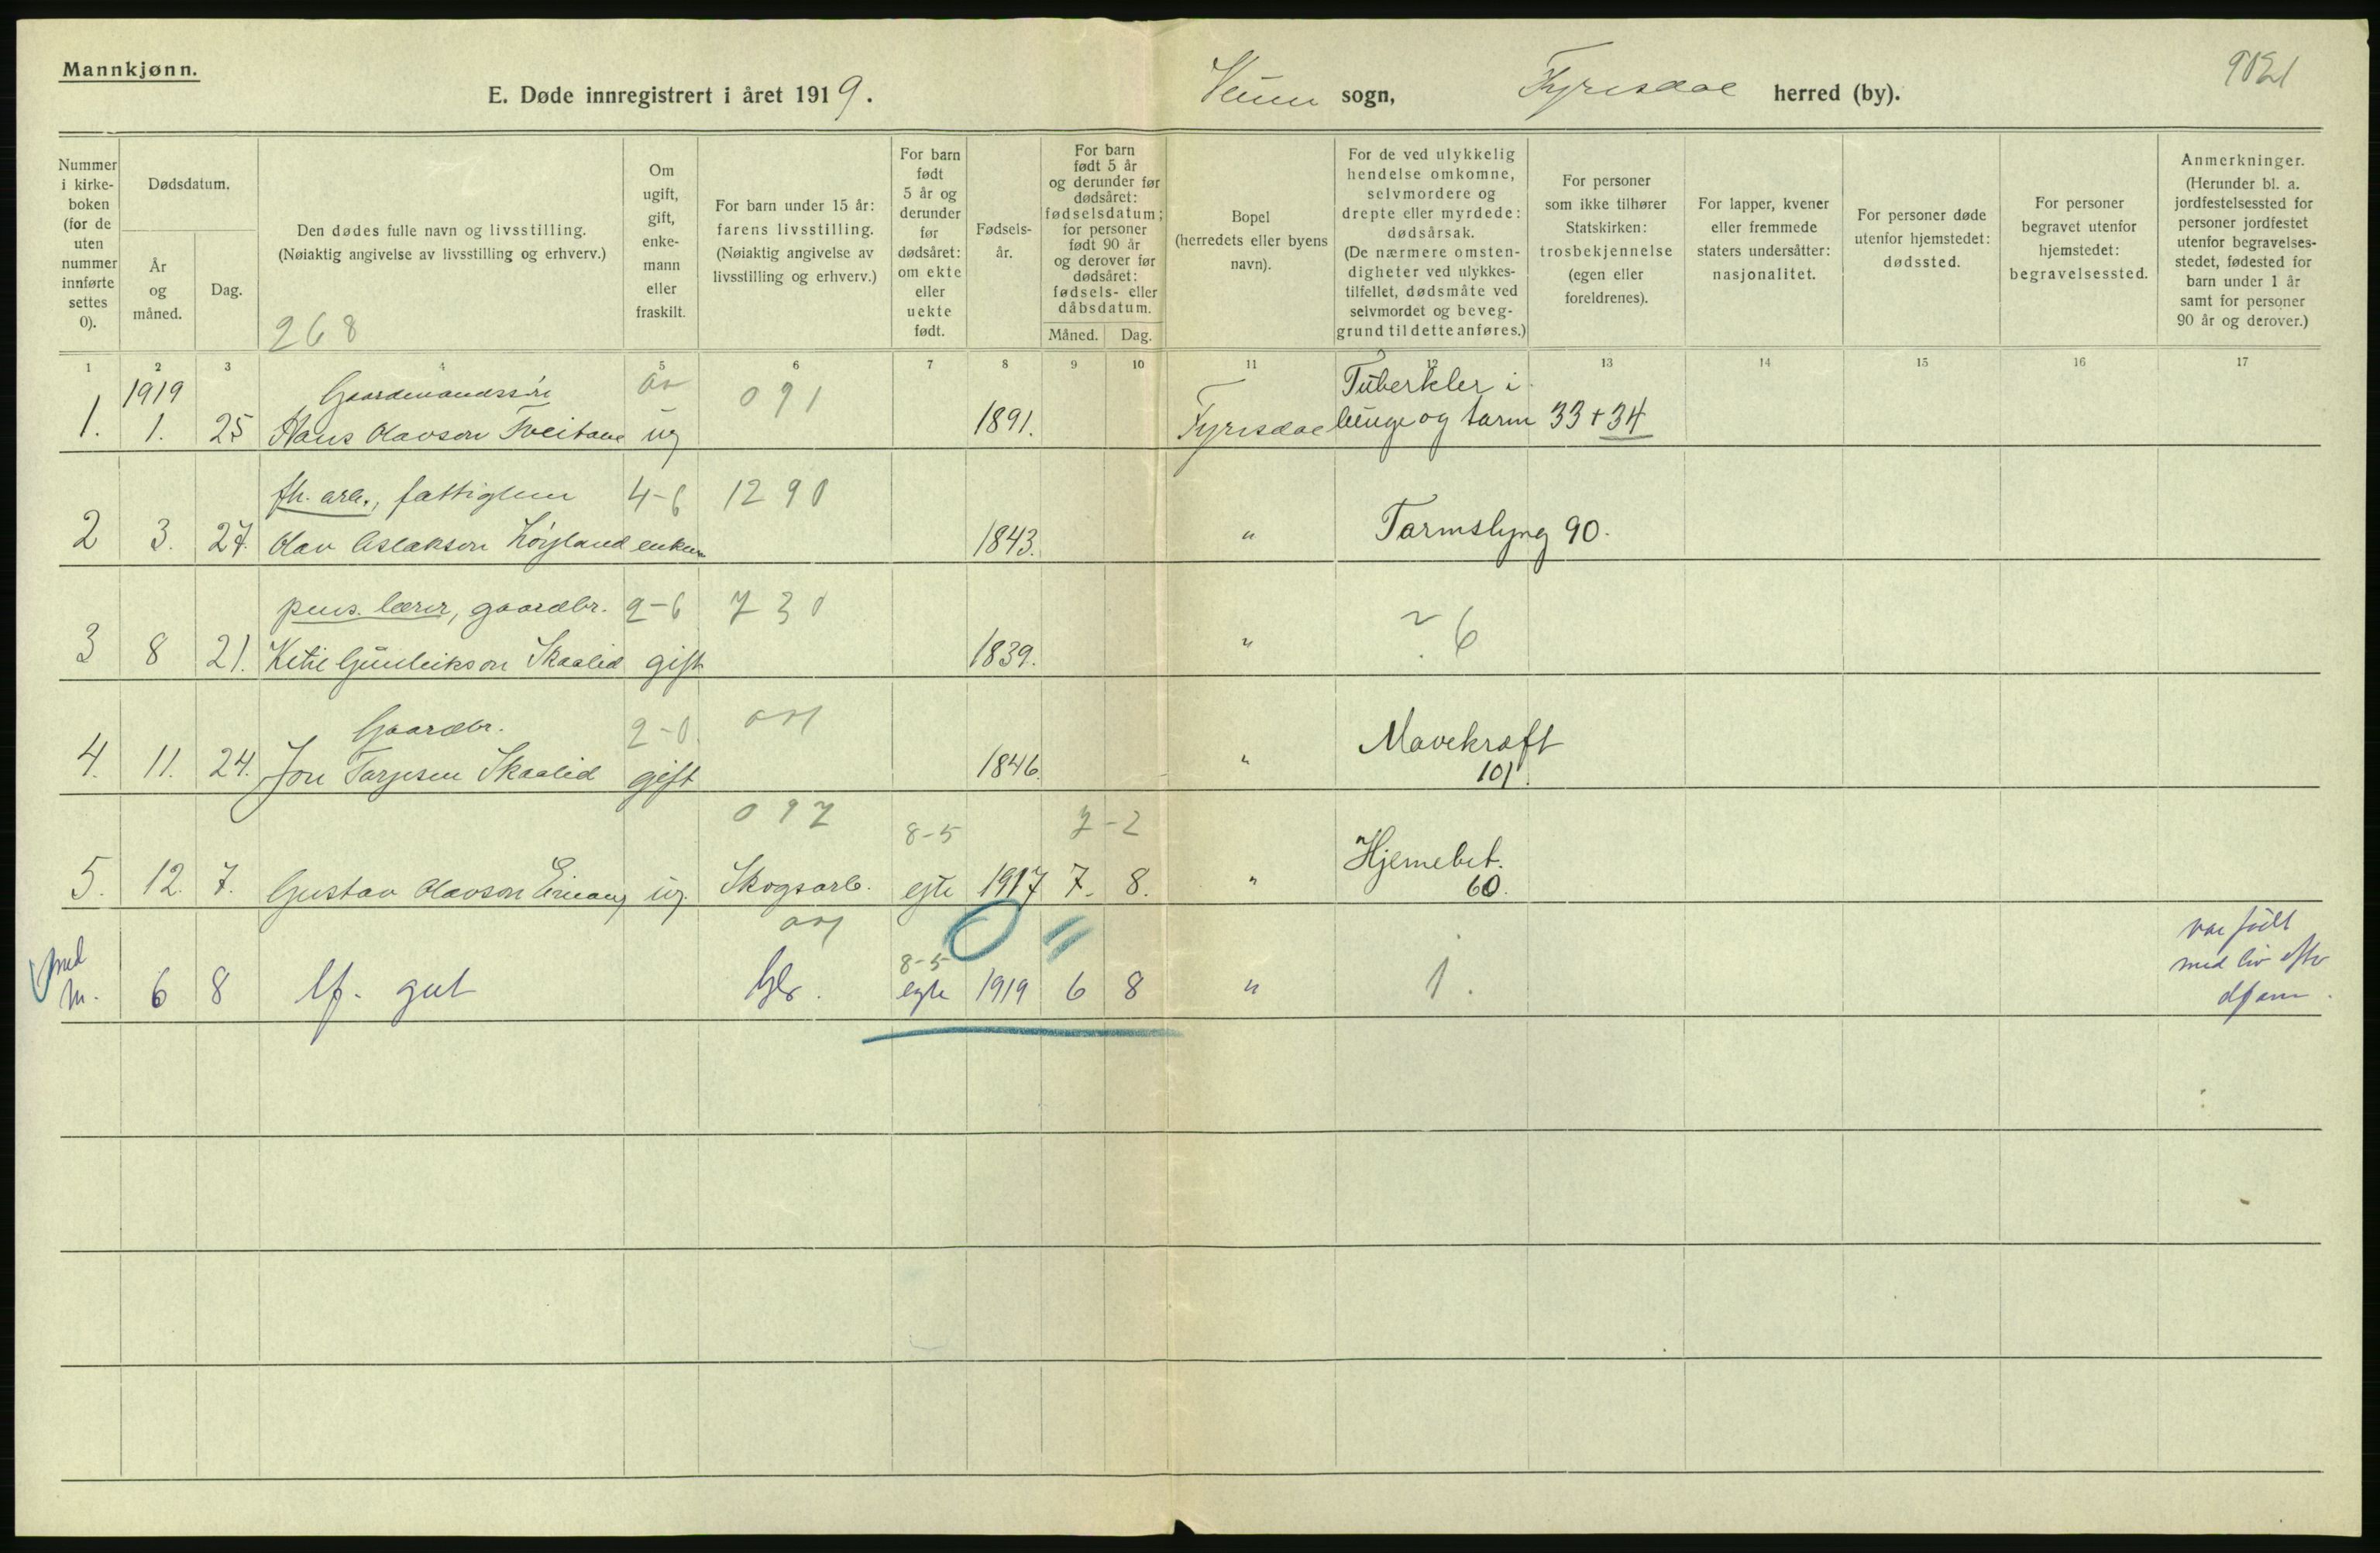 Mannkjønn.
E. Døde innregistrert i året 1919. Veum sogn, Fyrisdal herred (by).
Nummer i kirkeboken (for de uten nummer innførte settes 0).
Dødsdatum.
År og måned.
Dag.
Den dødes fulle navn og livsstilling.
(Nøiaktig angivelse av livsstilling og erhverv.)
268
Om ugift, gift, enkemann eller fraskilt.
For barn under 15 år: farens livsstilling. (Nøiaktig angivelse av livsstilling og erhverv.)
For barn født 5 år og derunder før dødsåret: om ekte eller uekte født.
Fødselsår.
For barn født 5 år og derunder før dødsåret: fødselsdatum; for personer født 90 år og derover før dødsåret: fødsels- eller dåbsdatum.
Måned. Dag.
Bopel (herredets eller byens navn).
For de ved ulykkelig hendelse omkomne, selvmordere og drepte eller myrdede: dødsårsak. (De nærmere omstendigheter ved ulykkestilfellet, dødsmåte ved selvmordet og beveggrund til dette anføres.)
For personer som ikke tilhører Statskirken: trosbekjennelse (egen eller foreldrenes).
For lapper, kvener eller fremmede staters undersåtter: nasjonalitet.
For personer døde utenfor hjemstedet: dødssted.
For personer begravet utenfor hjemstedet: begravelsessted.
Anmerkninger. (Herunder bl. a. jordfestelsessted for personer jordfestet utenfor begravelsesstedet, fødested for barn under 1 år samt for personer 90 år og derover.)
1 2 3 4 5 6 7 8 9 10 11 12 13 14 15 16 17
1919 Gaardmandssøn 091 Tuberkler i
1. 1. 25 Hans Olavson Tveitane ug 1891. Fyrisdal lunge og tarm 33 + 34
fh. arb., fattiglem 4-6 1290
2 3. 27. Olav Aslakson Høyland enkem 1843. " Tarmslyng 90.
pens. lærer, gaardbr. 2-6 730
3 8 21. Ketil Gunleikson Skaalid gift 1839. " ? 6
Gaardbr. 2-0
4. 11. 24. Jon Tarjesen Skaalid gift 1846. " Mavekræft
101.
097 8-5 7-2 Hjernebet.
5. 12. 7. Gustav Olavson ug. Skogsarb. egte 1917 7. 8. " 60.
8-5 var født
med
m. 6 8 Uf. gut Gbr. egte 1919 6 8 " 1. med liv efter
dfam.